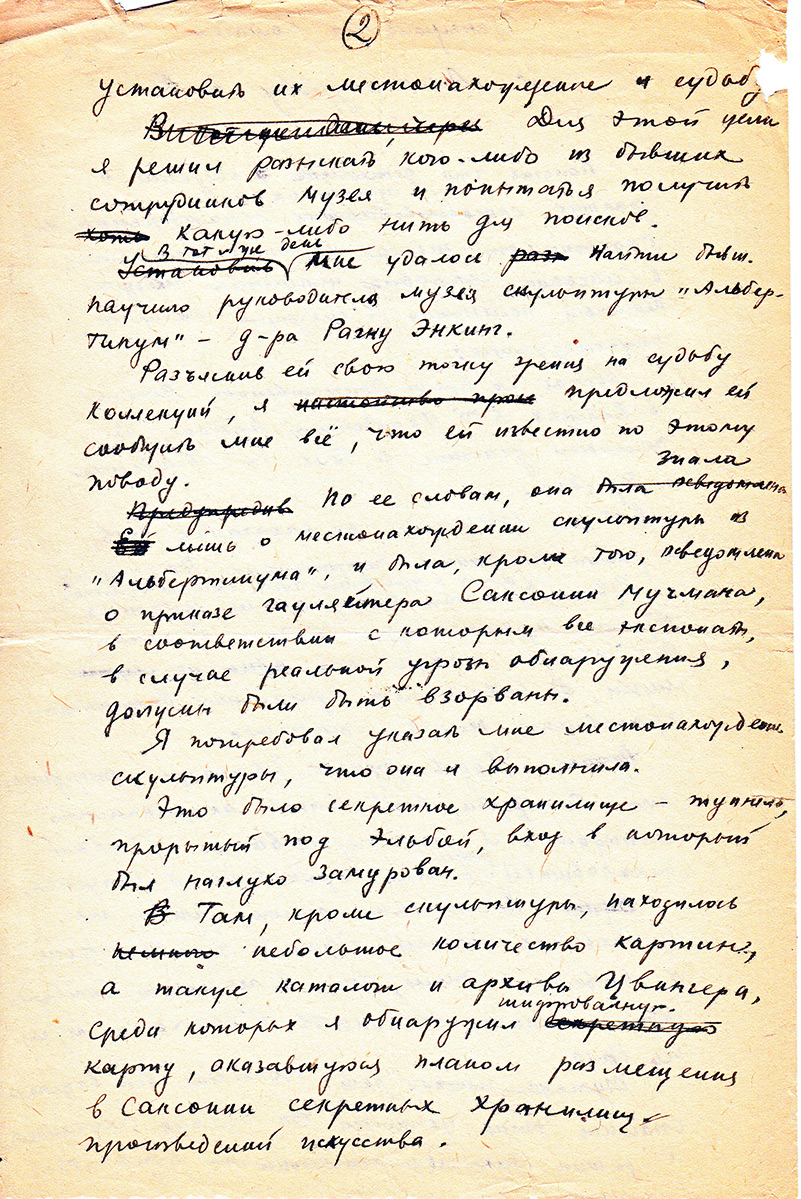 2
установить их местонахождение и судьбу
Для этой цели
я решил разыскать кого-либо из бывших
сотрудников музея и попытаться получить
хоть какую-либо нить для поисков.
В тот же день
Установив мне удалось раз найти бывш.
научного руководителя музея скульптуры "Альбер-
тинум" – д-ра Рагну Энкинг.
Разъяснив ей свою точку зрения на судьбу
коллекций, я настойчиво предложил ей
сообщить мне всё, что ей известно по этому
поводу.
знала
Предупредив По ее словам, она была осведомлена
Ей лишь о местонахождении скульптуры из
"Альбертинума", и была, кроме того, осведомлена
о приказе гауляйтера Саксонии Мучмана,
в соответствии с которым все экспонаты,
в случае реальной угрозы обнаружения,
должны были быть взорваны.
Я потребовал указать мне местонахождение
скульптуры, что она и выполнила.
Это было секретное хранилище – туннель,
прорытый под Эльбой, вход в который
был наглухо замурован.
В Там, кроме скульптуры, находилось
немного небольшое количество картин,
а также каталоги и архивы Цвингера,
шифрованную
среди которых я обнаружил секретную
карту, оказавшуюся планом размещения
в Саксонии секретных хранилищ
произведений искусства.